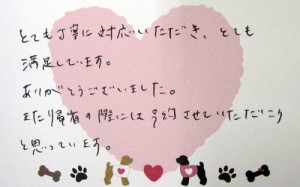 とても丁寧に対応いただき、とても
満足しています。
ありがとうございました。
また帰省の際には予約させていただこう
と思っています。